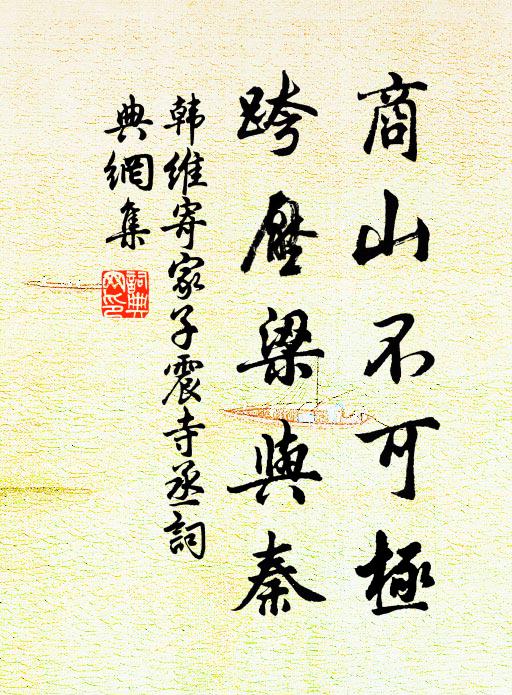 商山不可極
跨壓梁與秦
韩維寄家子震寺丞詞
典網集
詞典網印